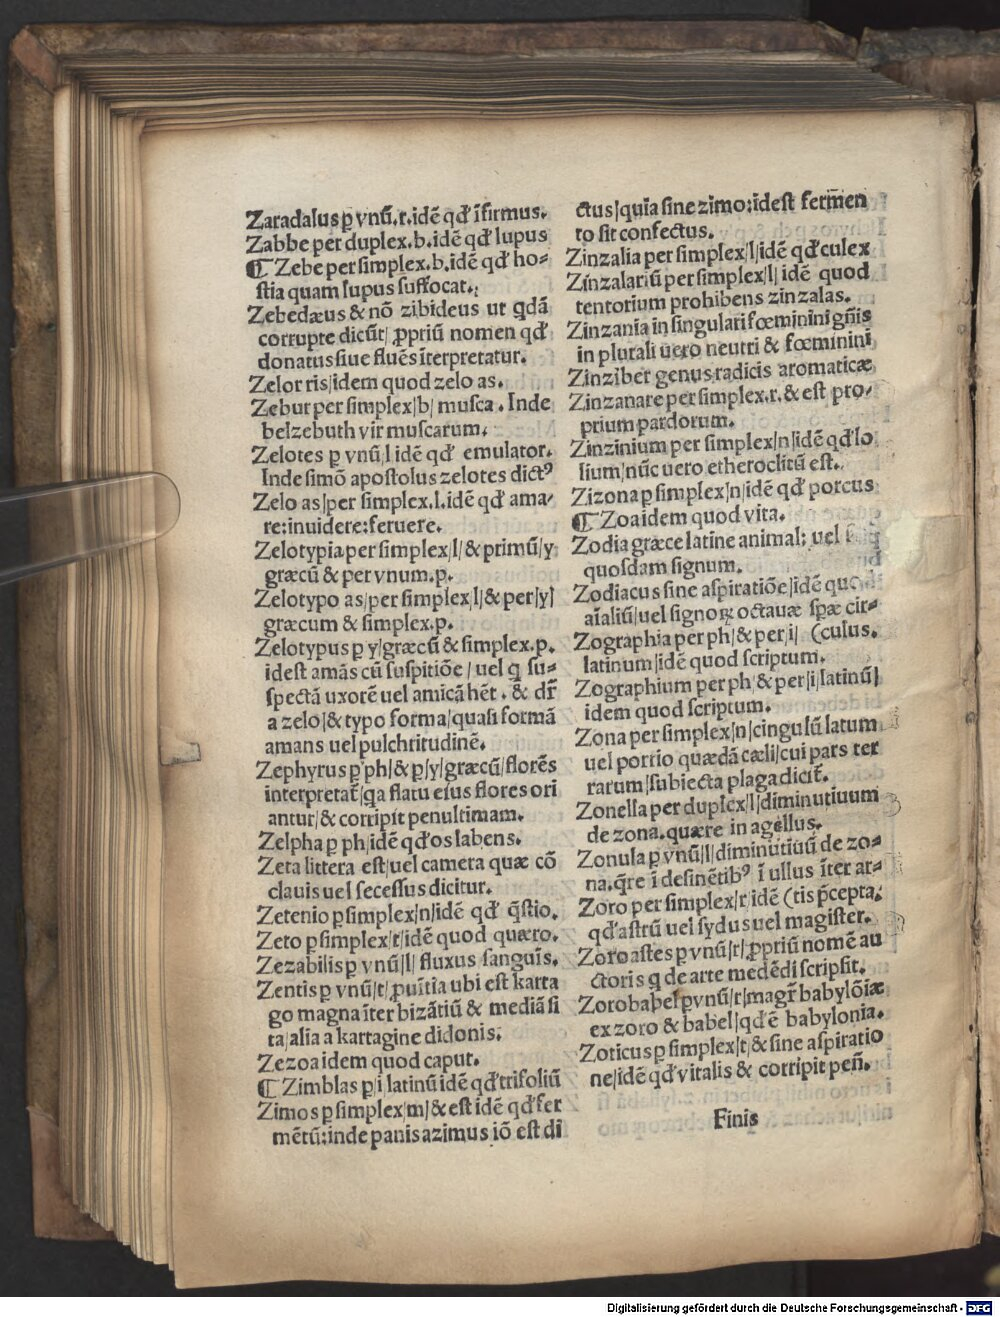 Zaradalus ꝑ vnū.r.idē qď īfirmus.
Zabbe per duplex.b.idē qď lupus
¶ Zebe per ſimplex.b.idē qď ho-
ſtia quam lupus ſuffocat.
Zebedæus & nō zibideus ut qdā
corrupte dicūt/ ꝓpriū nomen qď
donatus ſiue fluēs īterpretatur.
Zelor ris/idem quod zelo as.
Zebur per ſimplex/b/ muſca . Inde
belzebuth vir muſcarum.
Zelotes ꝑ vnū/l idē qď emulator.
Inde ſimō apoſtolus zelotes dictꝰ
Zelo as/per ſimplex.l.idē qď ama-
re:inuidere:feruere.
Zelotypia per ſimplex/l/ & primū/y
græcū & per vnum.p.
Zelotypo as/per ſimplex/l/& per/y/
græcum & ſimplex.p.
Zelotypus ꝑ y/græcū & ſimplex.p.
ideſt amās cū ſuſpitiōe / uel q ſu-
ſpectā uxorē uel amicā hēt . & dr̄
a zelo/& typo forma/quaſi formā
amans uel pulchritudinē.
Zephyrus ꝑ ph/& ꝑ/y/græcū/florēs
interpretat̄/qa flatu eius flores ori
antur/& corripit penultimam.
Zelpha ꝑ ph/idē qď os labens.
Zeta littera eſt/uel camera quæ cō
clauis uel ſeceſſus dicitur.
Zetenio ꝑ ſimplex/n/idē qď q̄ſtio.
Zeto ꝑ ſimplex/t/idē quod quæro.
Zezabilis ꝑ vnū/l/ fluxus ſanguīs.
Zentis ꝑ vnū/t/ ꝓuītia ubi eſt karta
go magna īter bizātiū & mediā ſi
ta/alia a kartagine didonis.
Zezoa idem quod caput.
¶ Zimblas ꝑ/i latinū idē qď trifoliū
Zimos ꝑ ſimplex/m/& eſt idē qď fer
mētū:inde panis azimus iō eſt di
ctus/quia ſine zimo:ideſt fermen
to ſit confectus.
Zinzalia per ſimplex/l/idē qď culex
Zinzalariū per ſimplex/l/ idē quod
tentorium prohibens zinzalas.
Zinzania in ſingulari fœminini gn̄is
in plurali uero neutri & fœminini
Zinziber genus radicis aromaticæ
Zinzanare per ſimplex.r.& eſt pro-
prium pardorum.
Zinzinium per ſimplex/n/idē qď lo
lium/nūc uero etheroclitū eſt.
Zizona ꝑ ſimplex/n/idē qď porcus
¶ Zoa idem quod vita.
Zodia græce latine animal: uel
quoſdam ſignum.
Zodiacus ſine aſpiratiōe/idē
aīaliū/uel ſignoꝝ octauæ ſpæ cir-
Zographia per ph/& per/i/ (culus.
latinum/idē quod ſcriptum.
Zographium per ph/& per/i/latinū/
idem quod ſcriptum.
Zona per ſimplex/n/cingulū latum
uel portio quædā cæli/cui pars ter
rarum/ſubiecta plaga dicit̄.
Zonella per duplex/l/diminutiuum
de zona.quære in agellus.
Zonula ꝑ vnū/l/diminutiuū de zo-
na.q̄re ī deſinētibꝰ ī ullus īter ar-
Zoro per ſimplex/r/idē (tis p̄cepta.
qď aſtrū uel ſydus uel magiſter.
Zoroaſtes ꝑ vnū/t/ ꝓpriū nomē au
ctoris q de arte medēdi ſcripſit.
Zorobabel ꝑ vnū/t/magr̄ babylōiæ
ex zoro & babel/qď ē babylonia.
Zoticus ꝑ ſimplex/t/& ſine aſpiratio
ne/idē qď vitalis & corripit pen̄.
Finis
Digitalisierung gefördert durch die Deutsche Forschungsgemeinschaft - DFG